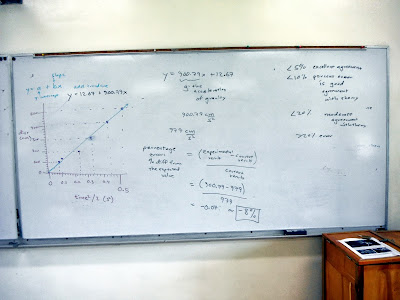 slope
y = a + bA
y intercept
y = 12.67 + 900.79x
500
0
0.1 0.2 0.3 0.4
0.5
time²/2 (s²)
y = 900.79x + 12.67
acceleration
of gravity
900.79 cm/s²
979 cm/s²
percentage
error
% diff from
the expected
value
= (Experimental result - correct result)
correct
result
= (900.79 - 979)
979
= -0.08 ≈ -8%
<5% excellent agreement
<10% percent error
is good
agreement
with theory
<20% moderate
agreement
w/ theory
>20% error